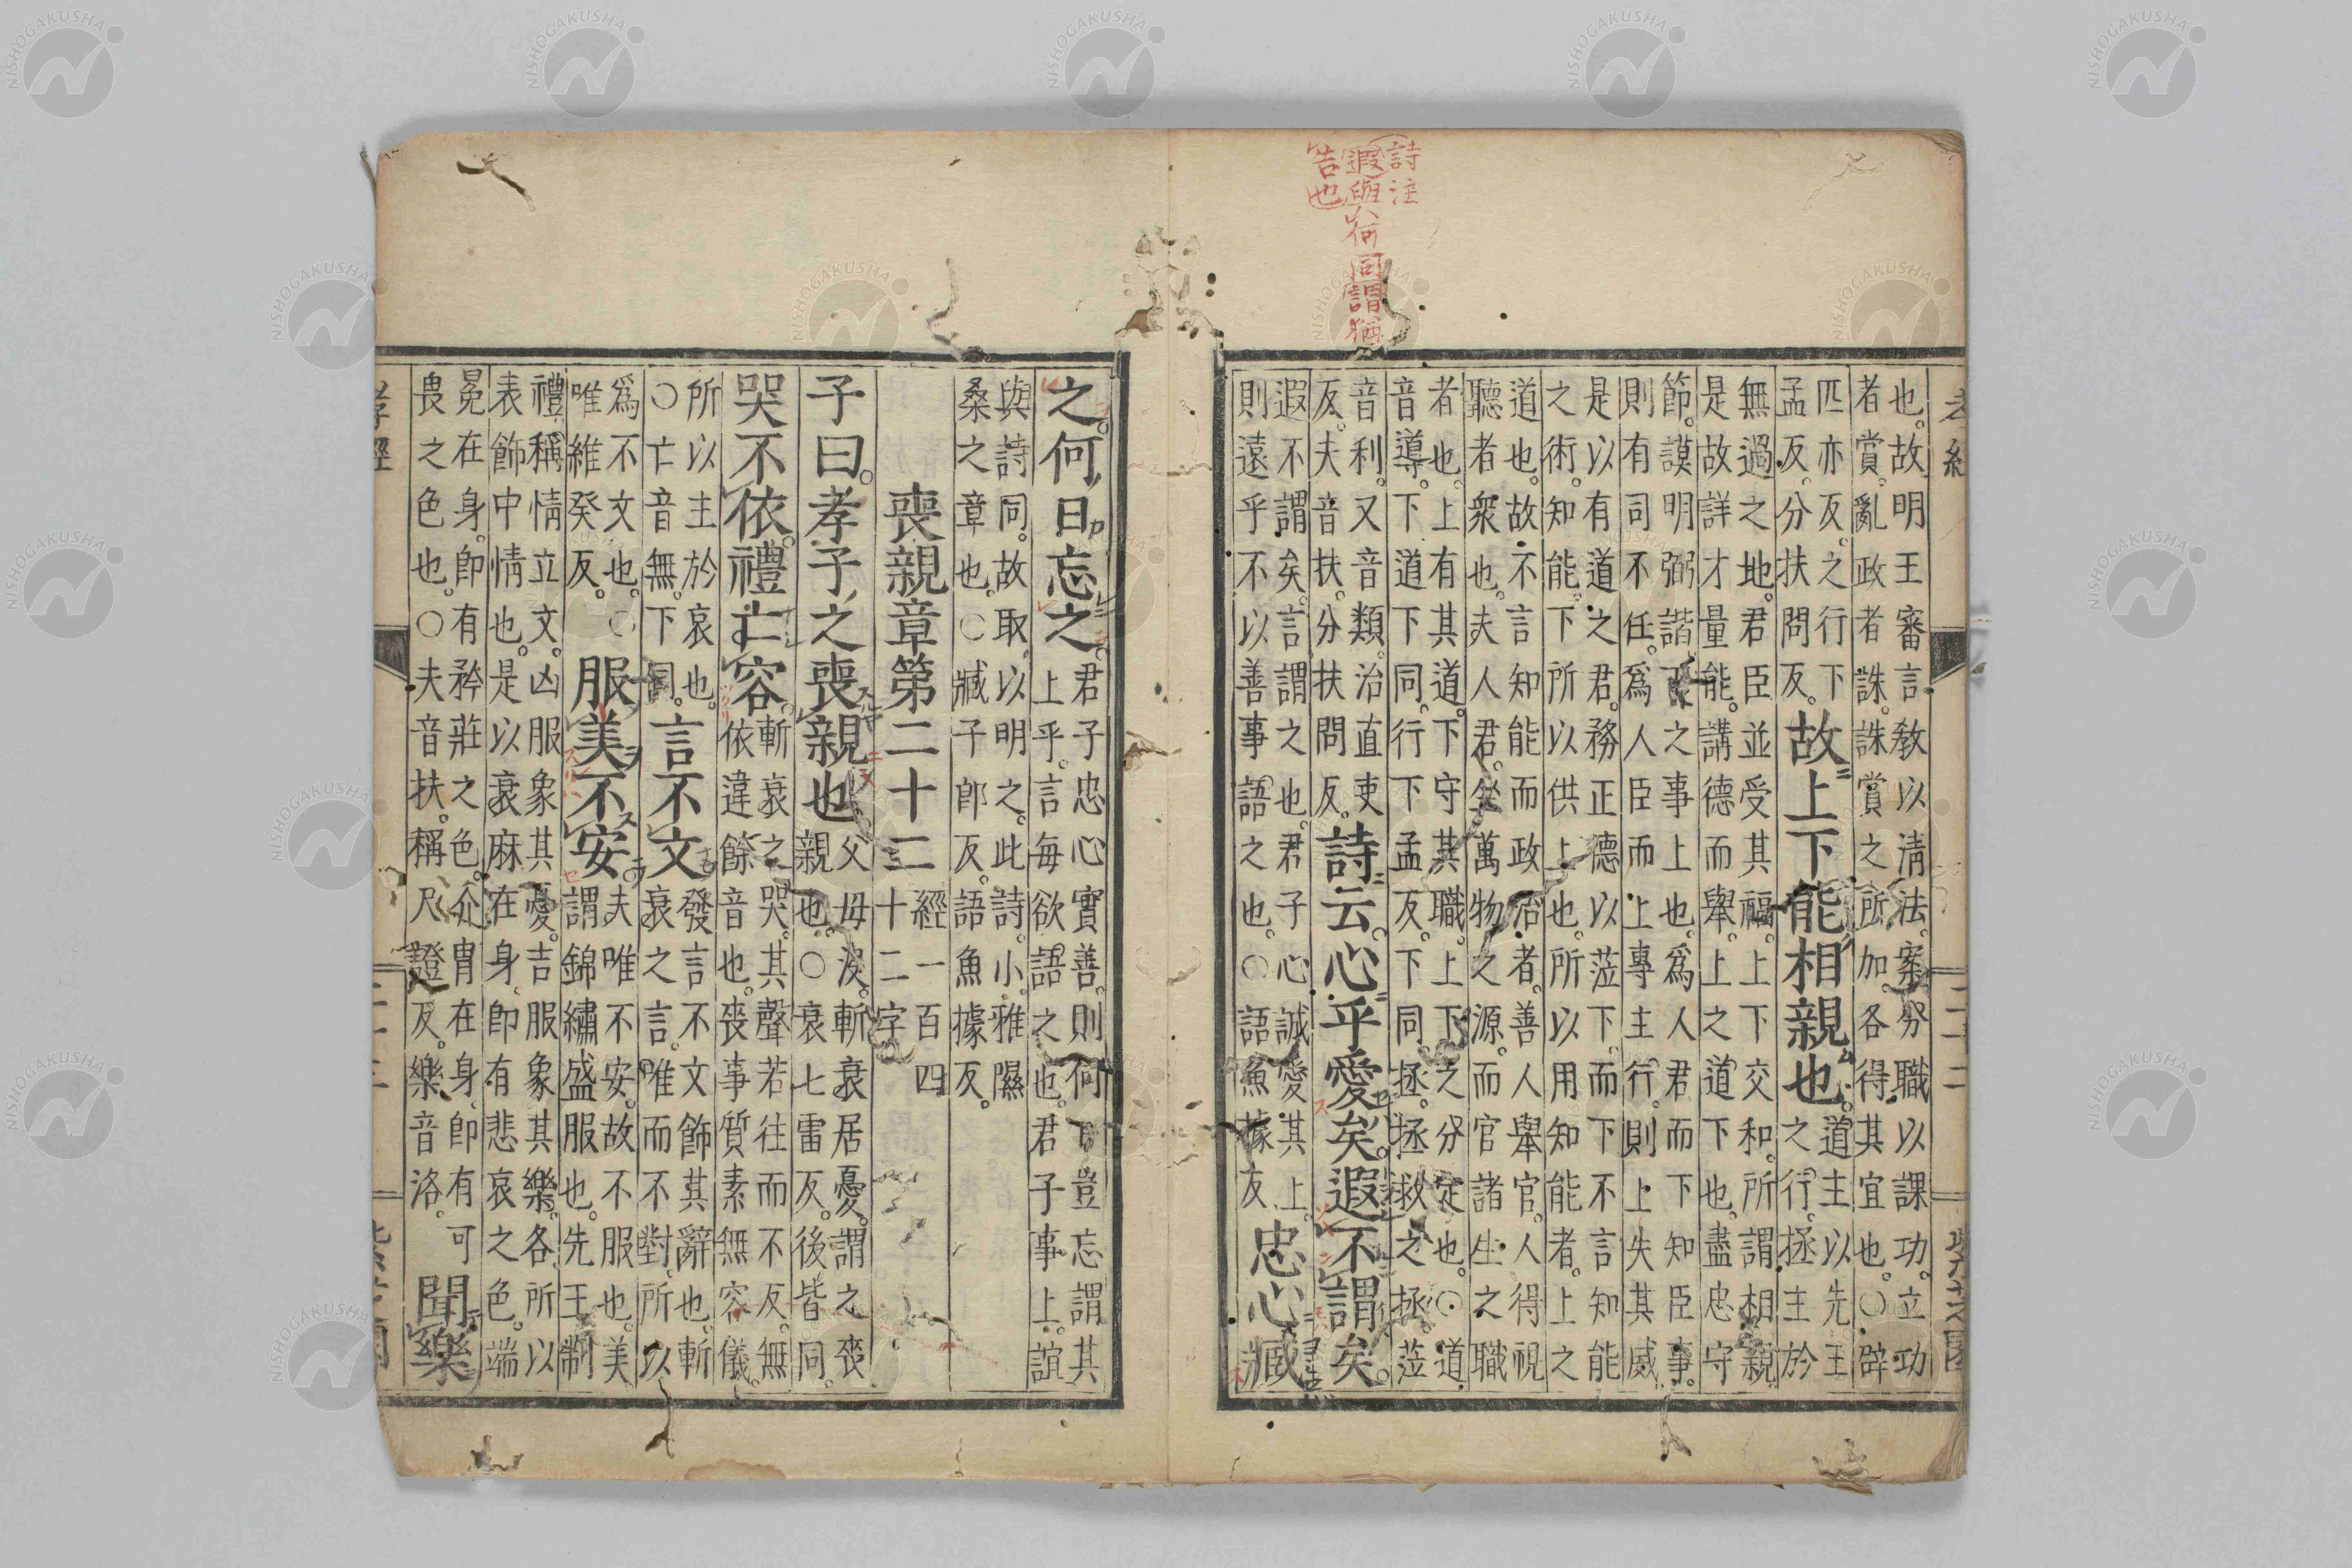 詩注
遐與何同謂猶
告也
也。故明王審言教以清法。案分職以課功。立功
者賞。亂政者誅。誅賞之所加。各得其宜也。○辟
匹亦反。之行下
孟反。分扶問反。
故上下能相親也。
道主以先王
之行。拯主於
無過之地。君臣並受其福。上下交和。所謂相親
是故詳才量能。講德而舉。上之道下也。盡忠守
節。謨明弼諧下之事上也。爲人君而下知臣事。
則有司不任。爲人臣而上專主行。則上失其威。
是以有道之君。務正德以莅下。而下不言知能
之術。知能。下所以供上也。所以用知能者。上之
道也。故不言知能而政治者。善人舉官。人得視
聽者衆也。夫人君。坐萬物之源。而官諸生之職
者也。上有其道。下守其職。上下之分定也。○道
音導。下道下同。行下孟反。下同。拯拯救之拯。莅
音利。又音類。治直吏
反。夫音扶。分扶問反。
詩云。心乎愛矣。遐不謂矣。
遐不謂矣。言謂之也。君子心誠愛其上。
則遠乎不以善事語之也。○語魚據反
忠心臧
之。何日忘之。
君子忠心實善。則何日豈忘謂其
上乎。言每欲語之也。君子事上。誼
與詩同。故取以明之。此詩。小雅隰
桑之章也。○臧子郎反。語魚據反。
喪親章第二十二
經一百四
十二字
子曰。孝子之喪親也
父母沒。斬衰居憂。謂之喪
親也。○衰七雷反。後皆同。
哭不依。禮亡容。
斬衰之哭。其聲若往而不反。無
依違餘音也。喪事質素無容儀。
所以主於哀也。
○亡音無。下同。
言不文
發言不文飾其辭也。斬
衰之言。唯而不對。所以
爲不文也。○
唯維癸反。
服美不安。
夫唯不安。故不服也。美
謂錦繡盛服也。先王制
禮。稱情立文。凶服象其憂。吉服象其樂。各所以
表飾中情也。是以衰麻在身。即有悲哀之色。端
冕在身。即有矜莊之色。介冑在身。即有可
畏之色也。○夫音扶。稱尺證反。樂音洛。
聞樂
孝經
二十三
NISHOGAKUSHA